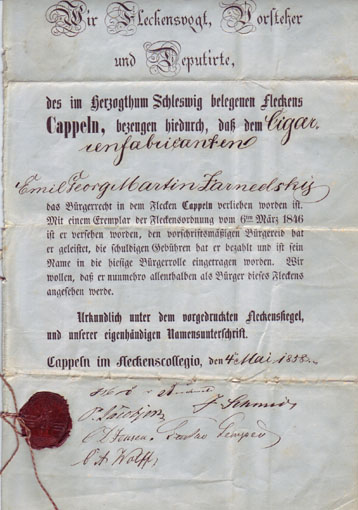 Wir Fleckensvogt, Vorsteher
und Deputirte,
des im Herzogthum Schleswig belegenen Fleckens
Cappeln, bezeugen hiedurch, daß dem Cigar-
renfabricanten
Emil Georg Martin
das Bürgerrecht in dem Flecken Cappeln verliehen worden ist.
Mit einem Exemplar der Fleckensordnung vom 6ten März 1846
ist er versehen worden, den vorschriftsmäßigen Bürgereid hat
er geleistet, die schuldigen Gebühren hat er bezahlt und ist sein
Name in die hiesige Bürgerrolle eingetragen worden. Wir
wollen, daß er nunmehro allenthalben als Bürger dieses Fleckens
angesehen werde.
Urkundlich unter dem vorgedruckten Fleckenssiegel,
und unserer eigenhändigen Namensunterschrift.
Cappeln im Fleckenscollegio, den 4 Mai 1858
J. Schmidt
P. Jacobsen
Jensen. Gustav
C. A. Wolff